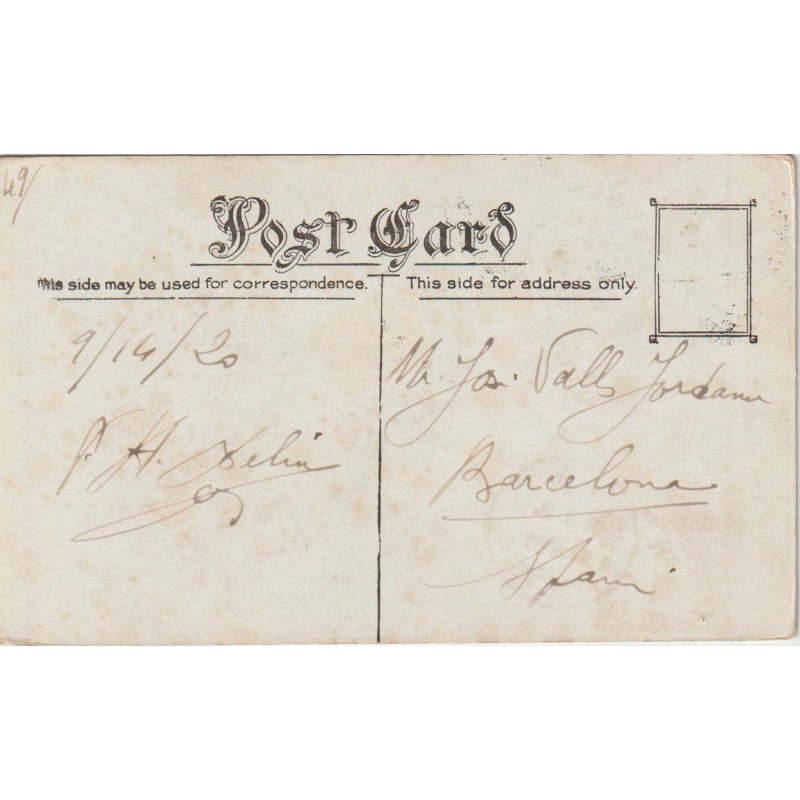 49/
Post Card
This side may be used for correspondence.
This side for address only.
9/14/20
Mr Jos. Valls Jordana
H.
Barcelona
Spain